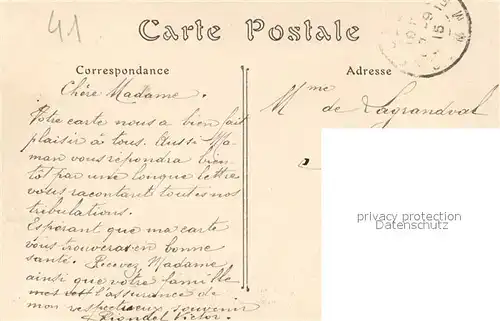 41
Carte Postale
Correspondance
Adresse
Chère Madame.
Votre carte nous a bien fait
plaisir à tous. Aussi Ma-
man vous répondra bien
tôt par une longue lettre
vous racontant toutes nos
tribulations.
Espérant que ma carte
vous trouveras en bonne
santé. Recevez Madame
ainsi que votre famille
l'assurance de
mon respectieux souvenir
Victor.
Mme
de Lagrandval
privacy protection
Datenschutz